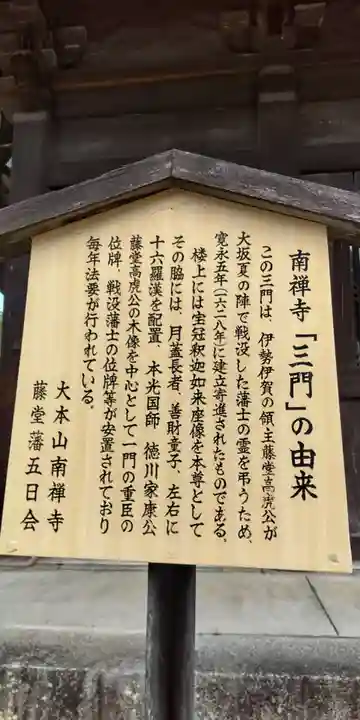 南禅寺「三門」の由来
この三門は、伊勢伊賀の領主藤堂高虎公が
大坂夏の陣で戦没した藩士の霊を弔うため、
寛永五年(一六二八年)に建立寄進されたものである。
楼上には宝冠釈迦如来座像を本尊として
その脇には、月蓋長者、善財童子、左右に
十六羅漢を配置、本光国師 徳川家康公
藤堂高虎公の木像を中心として一門の重臣の
位牌、戦没藩士の位牌等が安置されており
毎年法要が行われている。
大本山南禅寺
藤堂藩五日会